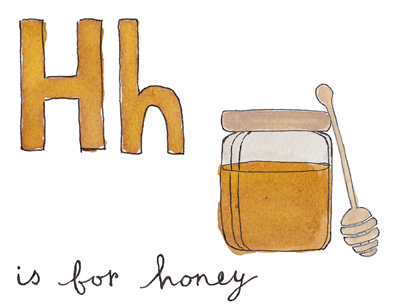 Hh
is for honey